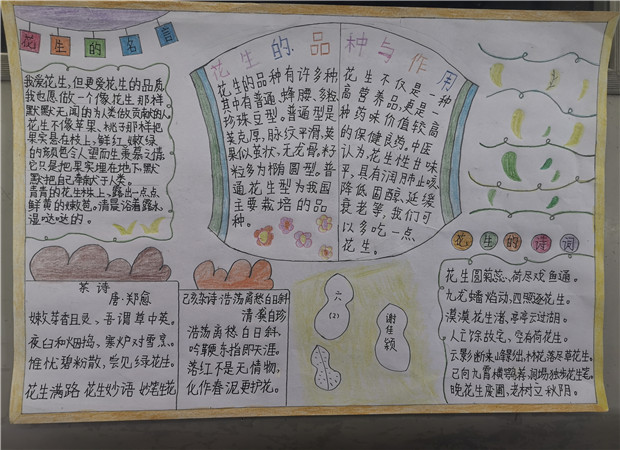 花生的名言
我爱花生,但更爱花生的品质
我也愿做一个像花生那样
默默无闻的为人类做贡献的人
花生不像苹果、桃子那样把
果实悬在枝上,鲜红嫩绿
的颜色令人望而生羡慕之情,
它只是把果实埋在地下,默
默把自己奉献于人类。
青青的花生株上,露出一点点
鲜黄的嫩苞。清晨浴着露水,
湿哒哒的。
花生的品种与作用
花生的品种有许多种
其中有普通、蜂腰、多粒、
珍珠豆型。普通型是
荚克厚,脉纹平滑,荚
果似茧状,无龙骨。籽
粒多为椭圆型。普
通花生型为我国
主要栽培的品
种。
花生不仅是一种
高营养品,更是一
种药味价值较高
的保健良药。中医
认为,花生性甘味
平,具有润肺止咳
降低固醇、延缓
衰老等,我们可
以多吃一点
花生。
花生的诗词
花生圆菊蕊,荷尽戏鱼通。
九龙蟠焰动,四照逐花生。
漠漠花生渚,亭亭云过湖。
人亡馀故宅,空有荷花生。
晚花生废圃,老树立秋阴。
茶诗
唐·郑愈
嫩芽香且灵、吾谓草中英。
夜臼和烟捣,寒炉对雪烹。
惟忧碧粉散,尝见绿花生。
花生满路 花生妙语 妙笔生花
己亥杂诗·浩荡离愁白日斜
清·龚自珍
浩荡离愁白日斜,
吟鞭东指即天涯。
落红不是无情物,
化作春泥更护花。
六
(2)
谢佳颖